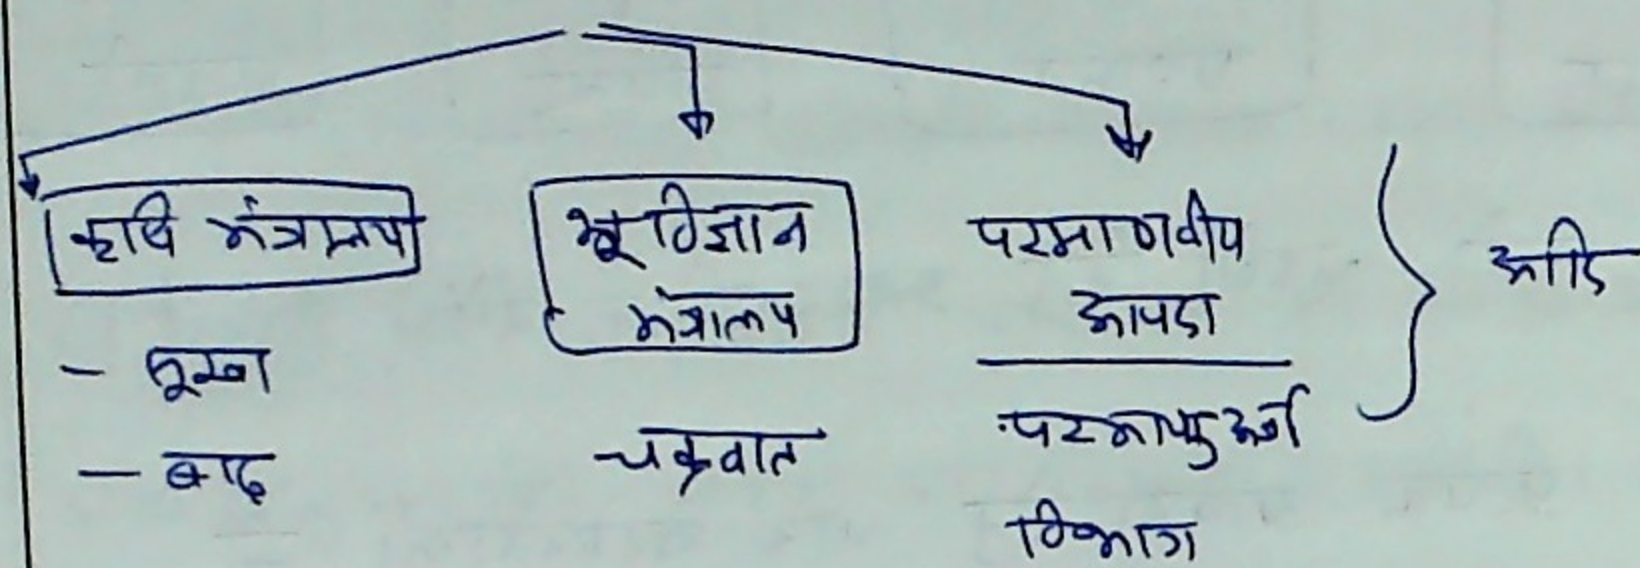 कृषि मंत्रालय
- सूखा
- बाढ़
भू विज्ञान
मंत्रालय
चक्रवात
परमाणवीय
आपदा
परमाणु ऊर्जा
विभाग
आदि